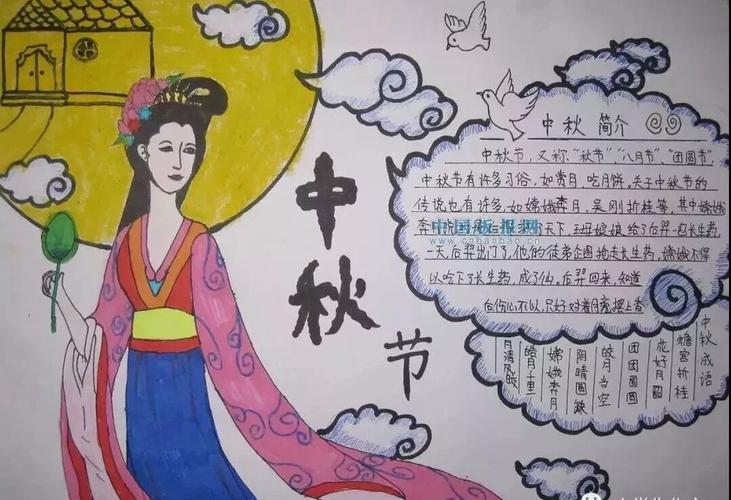 中
秋
节
中秋简介
中秋节,又称"秋节""八月节"、"团圆节"
中秋节有许多习俗,如赏月、吃月饼。关于中秋节的
传说也有许多,如嫦娥奔月、吴刚折桂等,其中嫦娥
奔月 天下,王母娘娘给了后羿一包长生药
一天后羿出门了,他的徒弟企图抢走长生药,嫦娥不得
以吟下了长生药,成了仙。后羿回来,知道
后伤心不以,只好对着月亮摆上香
中国板报网
中秋成语
蟾宫折桂
花好月圆
团团圆圆
皎月当空
阴晴圆缺
嫦娥奔月
皓月千里
月清风皎